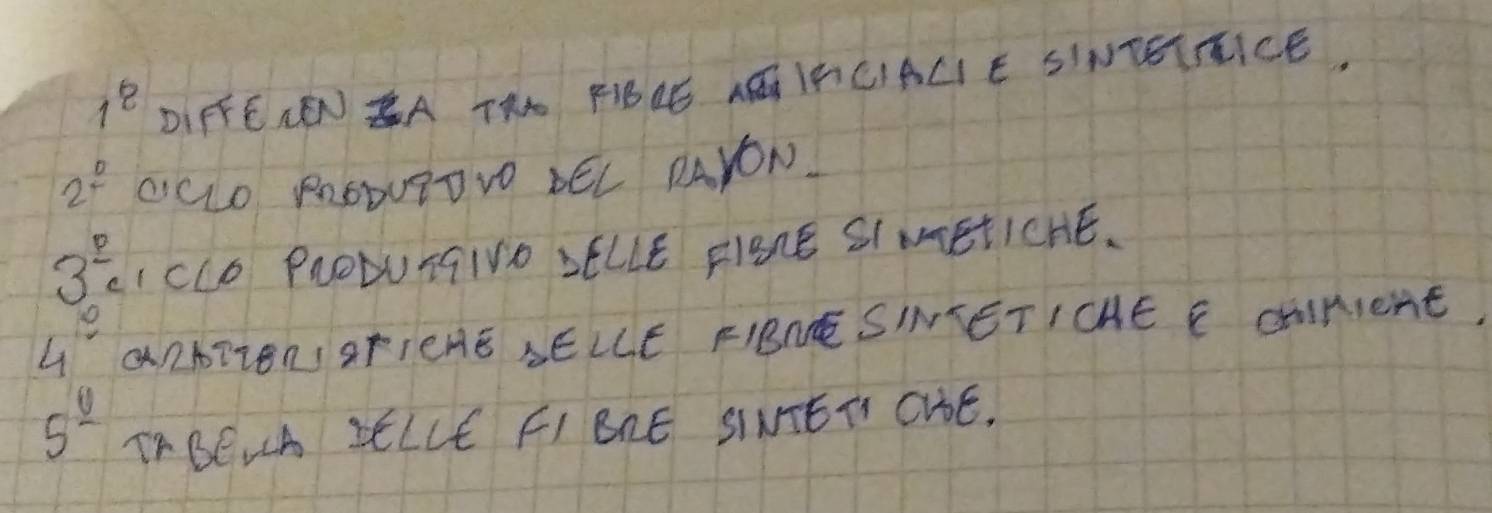 1º DIFFERENZA TRA FIBRE ARTIFICIALI E SINTETRICE.
2º CICLO PRODUTTIVO DEL RAYON.
3º CICLO PRODUTTIVO DELLE FIBRE SINTETICHE.
4º CARATTERISTICHE DELLE FIBRE SINTETICHE E CHIMICHE.
5º TABELLA DELLE FIBRE SINTETICHE.